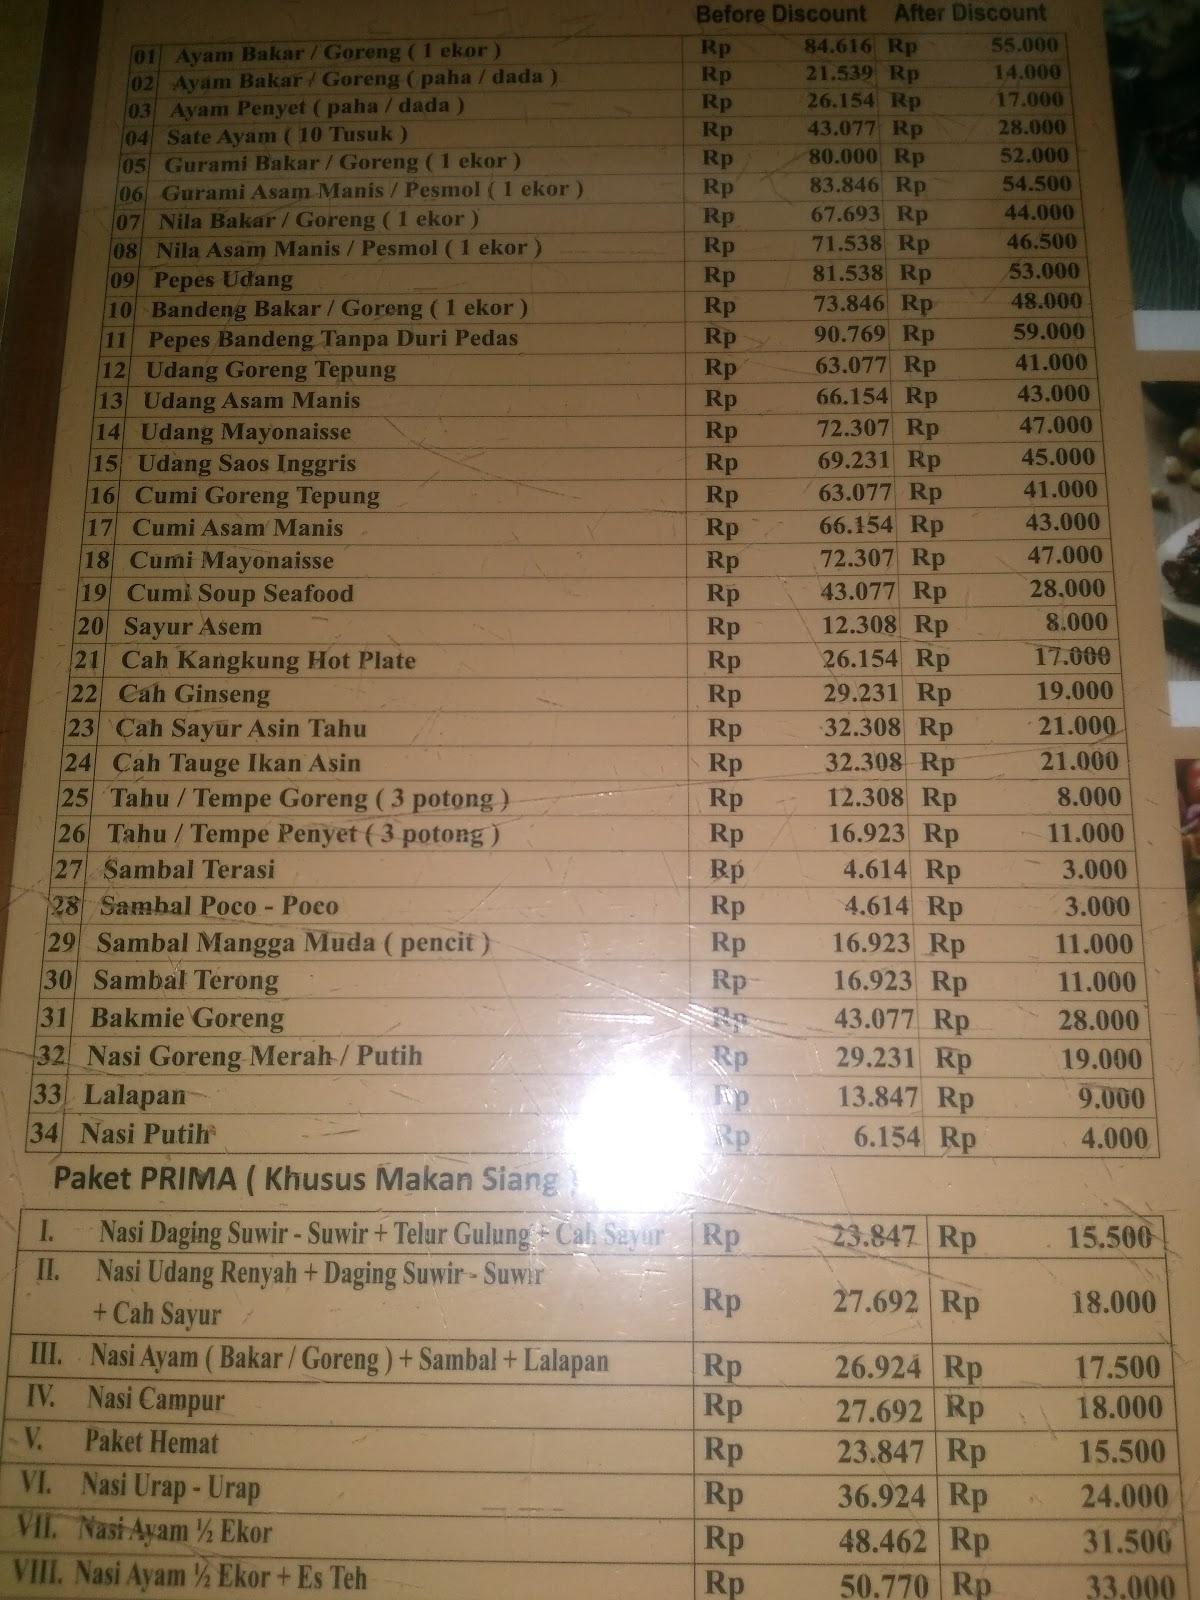 Before Discount After Discount
01 Ayam Bakar / Goreng ( 1 ekor ) Rp 84.616 Rp 55.000
02 Ayam Bakar / Goreng ( paha / dada ) Rp 21.539 Rp 14.000
03 Ayam Penyet ( paha / dada ) Rp 26.154 Rp 17.000
04 Sate Ayam ( 10 Tusuk ) Rp 43.077 Rp 28.000
05 Gurami Bakar / Goreng ( 1 ekor ) Rp 80.000 Rp 52.000
06 Gurami Asam Manis / Pesmol ( 1 ekor ) Rp 83.846 Rp 54.500
07 Nila Bakar / Goreng ( 1 ekor ) Rp 67.693 Rp 44.000
08 Nila Asam Manis / Pesmol ( 1 ekor ) Rp 71.538 Rp 46.500
09 Pepes Udang Rp 81.538 Rp 53.000
10 Bandeng Bakar / Goreng ( 1 ekor ) Rp 73.846 Rp 48.000
11 Pepes Bandeng Tanpa Duri Pedas Rp 90.769 Rp 59.000
12 Udang Goreng Tepung Rp 63.077 Rp 41.000
13 Udang Asam Manis Rp 66.154 Rp 43.000
14 Udang Mayonaisse Rp 72.307 Rp 47.000
15 Udang Saos Inggris Rp 69.231 Rp 45.000
16 Cumi Goreng Tepung Rp 63.077 Rp 41.000
17 Cumi Asam Manis Rp 66.154 Rp 43.000
18 Cumi Mayonaisse Rp 72.307 Rp 47.000
19 Cumi Soup Seafood Rp 43.077 Rp 28.000
20 Sayur Asem Rp 12.308 Rp 8.000
21 Cah Kangkung Hot Plate Rp 26.154 Rp 17.000
22 Cah Ginseng Rp 29.231 Rp 19.000
23 Cah Sayur Asin Tahu Rp 32.308 Rp 21.000
24 Cah Tauge Ikan Asin Rp 32.308 Rp 21.000
25 Tahu / Tempe Goreng ( 3 potong ) Rp 12.308 Rp 8.000
26 Tahu / Tempe Penyet ( 3 potong ) Rp 16.923 Rp 11.000
27 Sambal Terasi Rp 4.614 Rp 3.000
28 Sambal Poco - Poco Rp 4.614 Rp 3.000
29 Sambal Mangga Muda ( pencit ) Rp 16.923 Rp 11.000
30 Sambal Terong Rp 16.923 Rp 11.000
31 Bakmie Goreng Rp 43.077 Rp 28.000
32 Nasi Goreng Merah / Putih Rp 29.231 Rp 19.000
33 Lalapan Rp 13.847 Rp 9.000
34 Nasi Putih Rp 6.154 Rp 4.000
Paket PRIMA ( Khusus Makan Siang )
I. Nasi Daging Suwir - Suwir + Telur Gulung + Cah Sayur Rp 23.847 Rp 15.500
II. Nasi Udang Renyah + Daging Suwir - Suwir
+ Cah Sayur Rp 27.692 Rp 18.000
III. Nasi Ayam ( Bakar / Goreng ) + Sambal + Lalapan Rp 26.924 Rp 17.500
IV. Nasi Campur Rp 27.692 Rp 18.000
V. Paket Hemat Rp 23.847 Rp 15.500
VI. Nasi Urap - Urap Rp 36.924 Rp 24.000
VII. Nasi Ayam ½ Ekor Rp 48.462 Rp 31.500
VIII. Nasi Ayam ½ Ekor + Es Teh Rp 50.770 Rp 33.000